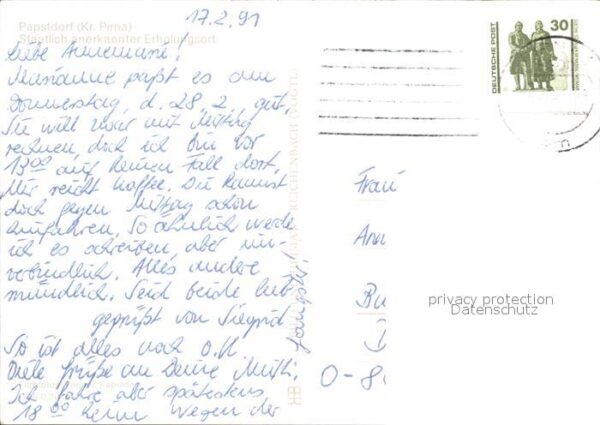 17.2.91
Papstdorf (Kr. Pirna)
Staatlich anerkannter Erholungsort
Liebe Annemarie!
Marianne paßt es am
Donnerstag, d. 28.2. gut,
Sie will zwar mit Mittag
rechnen, doch ich bin vor
13⁰⁰ auf keinen Fall dort.
Mir reicht Kaffee. Du kannst
doch gegen Mittag schon
hinfahren. So ähnlich werde
ich es schreiben, aber un-
verbindlich. Alles andere
mündlich. Seid beide lieb
gegrüßt von Siegrid
So ist alles noch o.K.
Viele Grüße an Deine Mutti,
Ich fahre aber spätestens
18⁰⁰ heim wegen der
REICHENBACH (VOGTL)
DEUTSCHE POST
30
Frau
Ann
Bu
D
O-8
privacy protection
Datenschutz